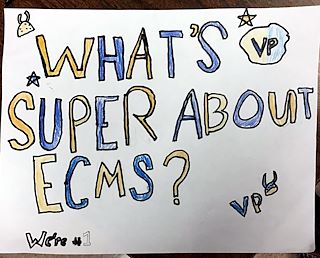 WHAT'S
VP
SUPER ABOUT
ECMS?
VP
We're #1